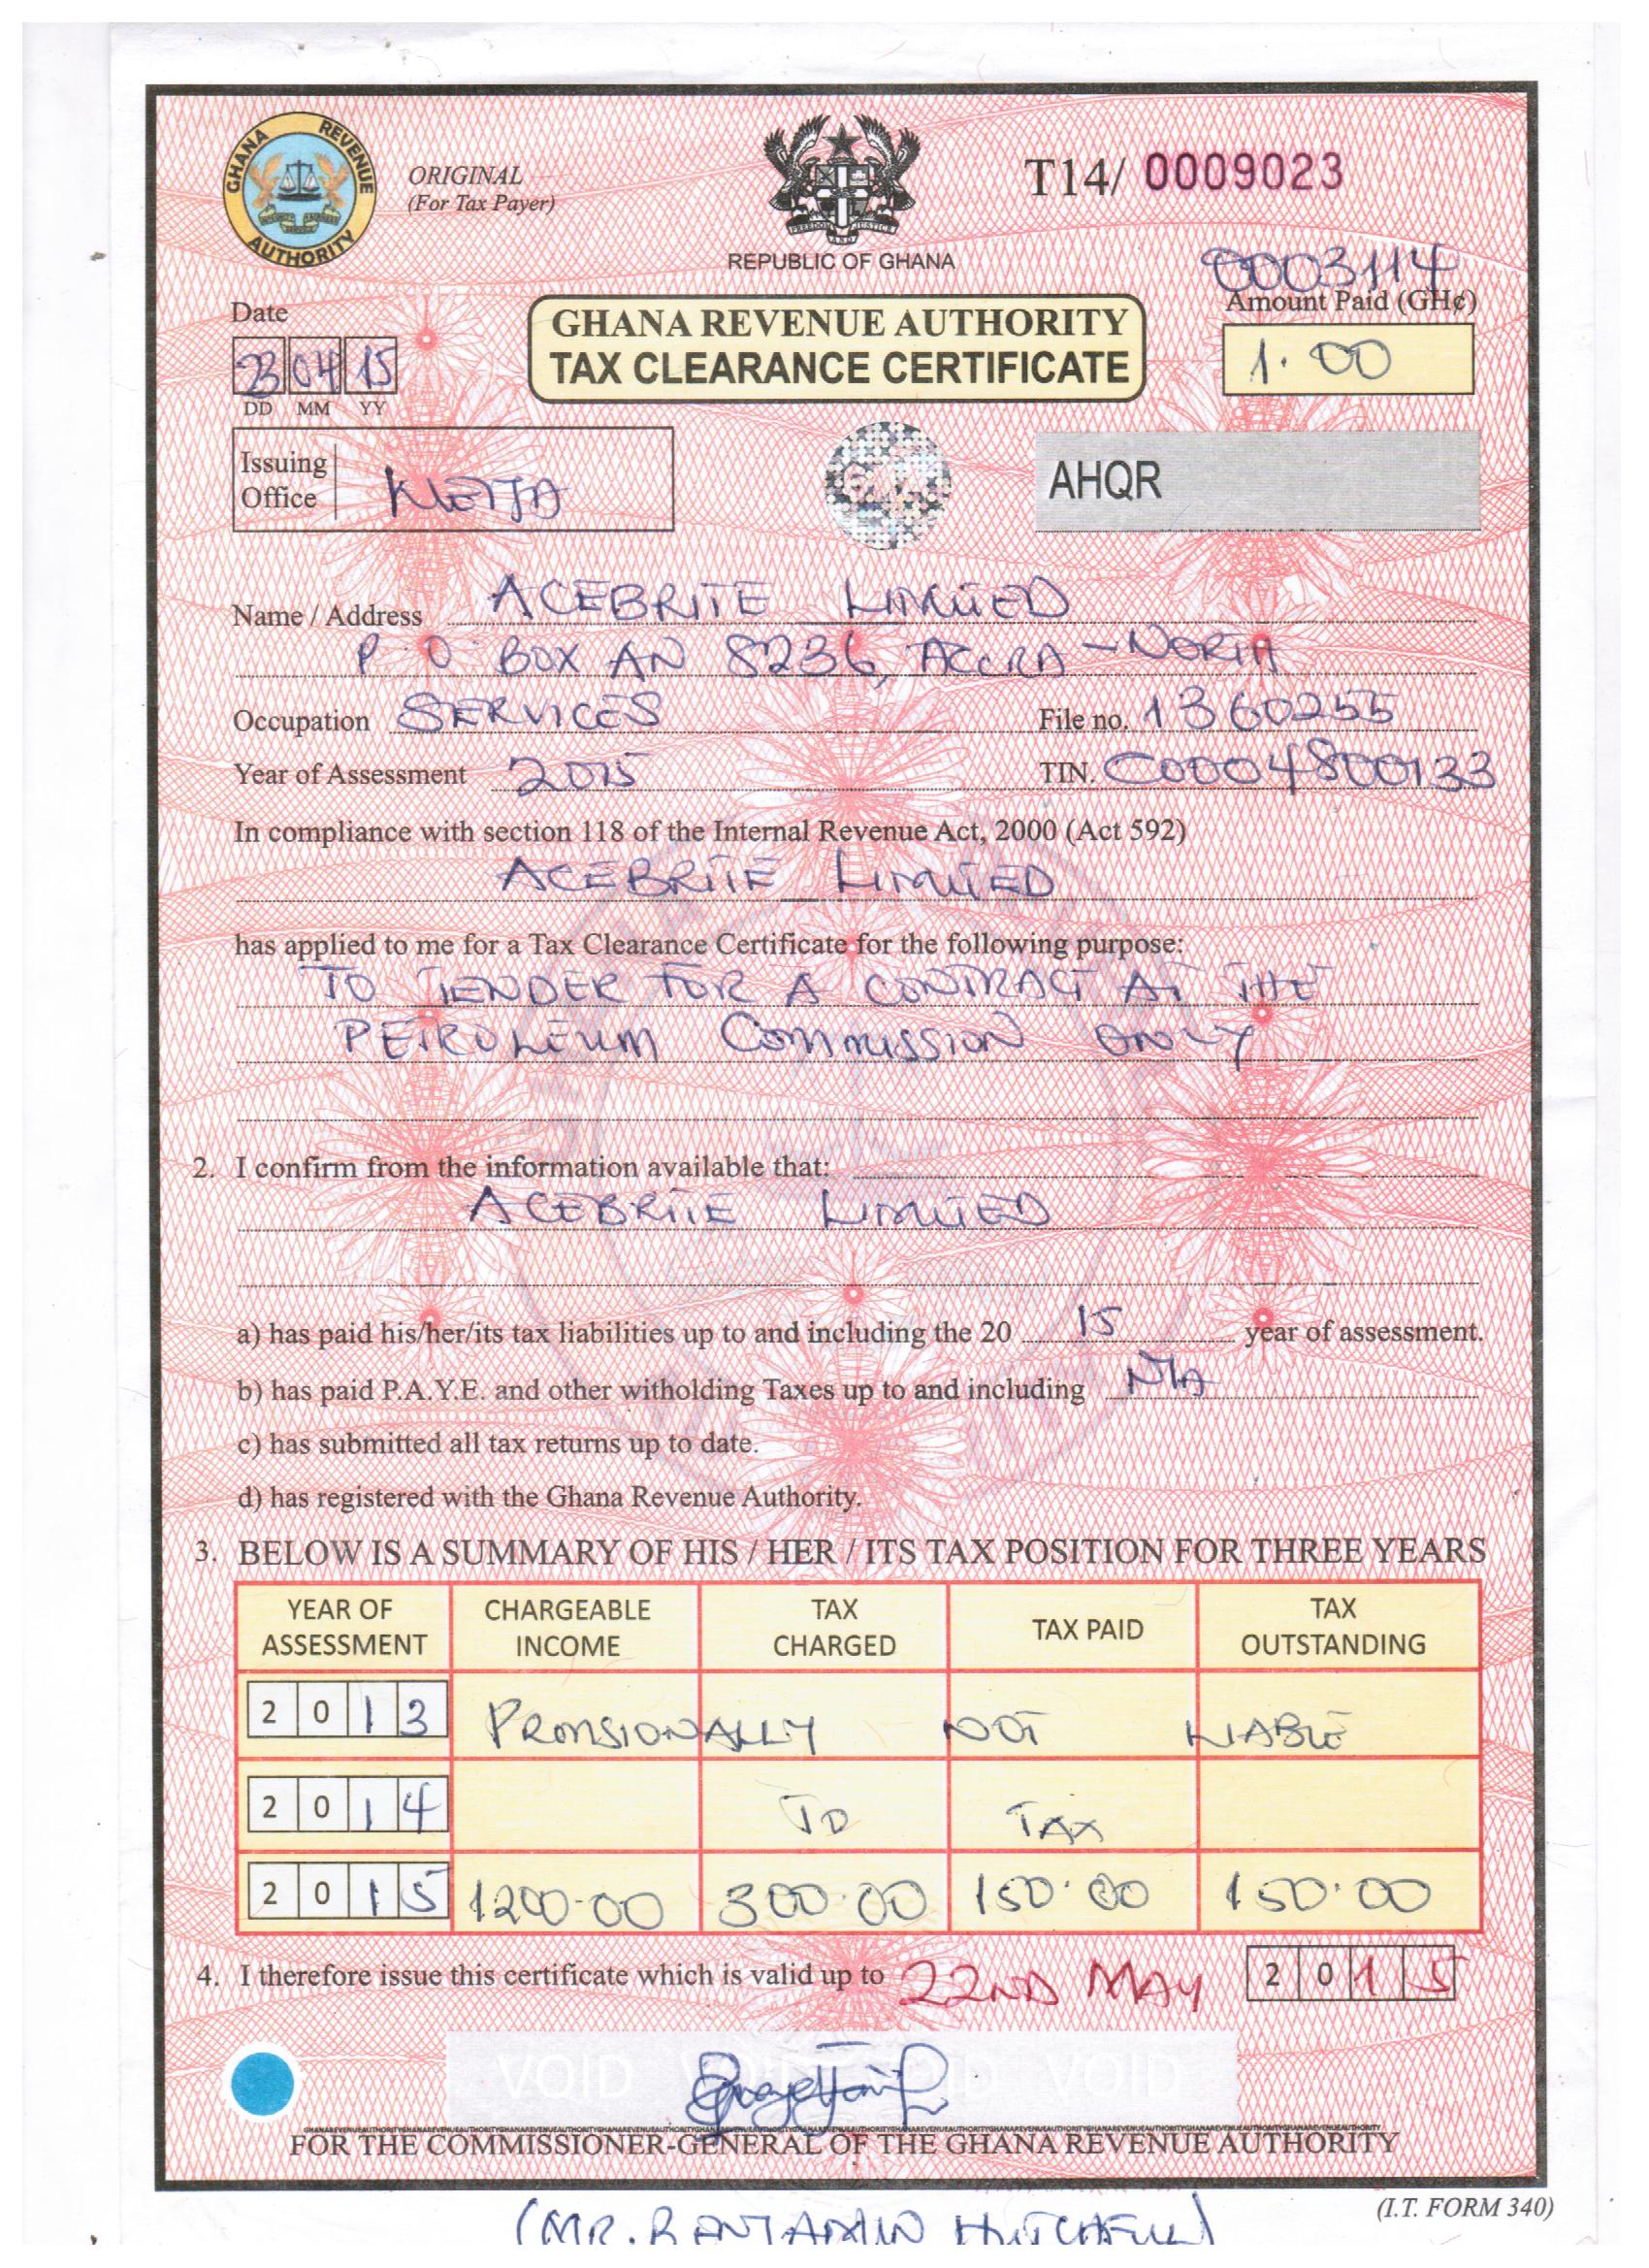 GHANA REVENUE AUTHORITY
ORIGINAL
(For Tax Payer)
FREEDOM AND JUSTICE
REPUBLIC OF GHANA
T14/ 0009023
0003114
Date
23 04 15
DD MM YY
GHANA REVENUE AUTHORITY
TAX CLEARANCE CERTIFICATE
Amount Paid (GH¢)
1.00
Issuing Office
AHQR
Name / Address ACEBRITE LIMITED
P O BOX AN 8236, ACCRA - NORTH
Occupation SERVICES File no. 1360255
Year of Assessment 2015 TIN. C0004800133
In compliance with section 118 of the Internal Revenue Act, 2000 (Act 592)
ACEBRITE LIMITED
has applied to me for a Tax Clearance Certificate for the following purpose:
TO TENDER FOR A CONTRACT AT THE
PETROLEUM COMMISSION ONLY
2. I confirm from the information available that:
ACEBRITE LIMITED
a) has paid his/her/its tax liabilities up to and including the 20 15 year of assessment.
b) has paid P.A.Y.E. and other witholding Taxes up to and including N/A
c) has submitted all tax returns up to date.
d) has registered with the Ghana Revenue Authority.
3. BELOW IS A SUMMARY OF HIS / HER / ITS TAX POSITION FOR THREE YEARS
YEAR OF ASSESSMENT CHARGEABLE INCOME TAX CHARGED TAX PAID TAX OUTSTANDING
2013 PROVISIONALLY NOT LIABLE
2014 TO TAX
2015 1200.00 300.00 150.00 150.00
4. I therefore issue this certificate which is valid up to 22ND MAY 2015
VOID VOID VOID VOID
FOR THE COMMISSIONER-GENERAL OF THE GHANA REVENUE AUTHORITY
(I.T. FORM 340)
(MR. BENJAMIN HUTCHFUL)